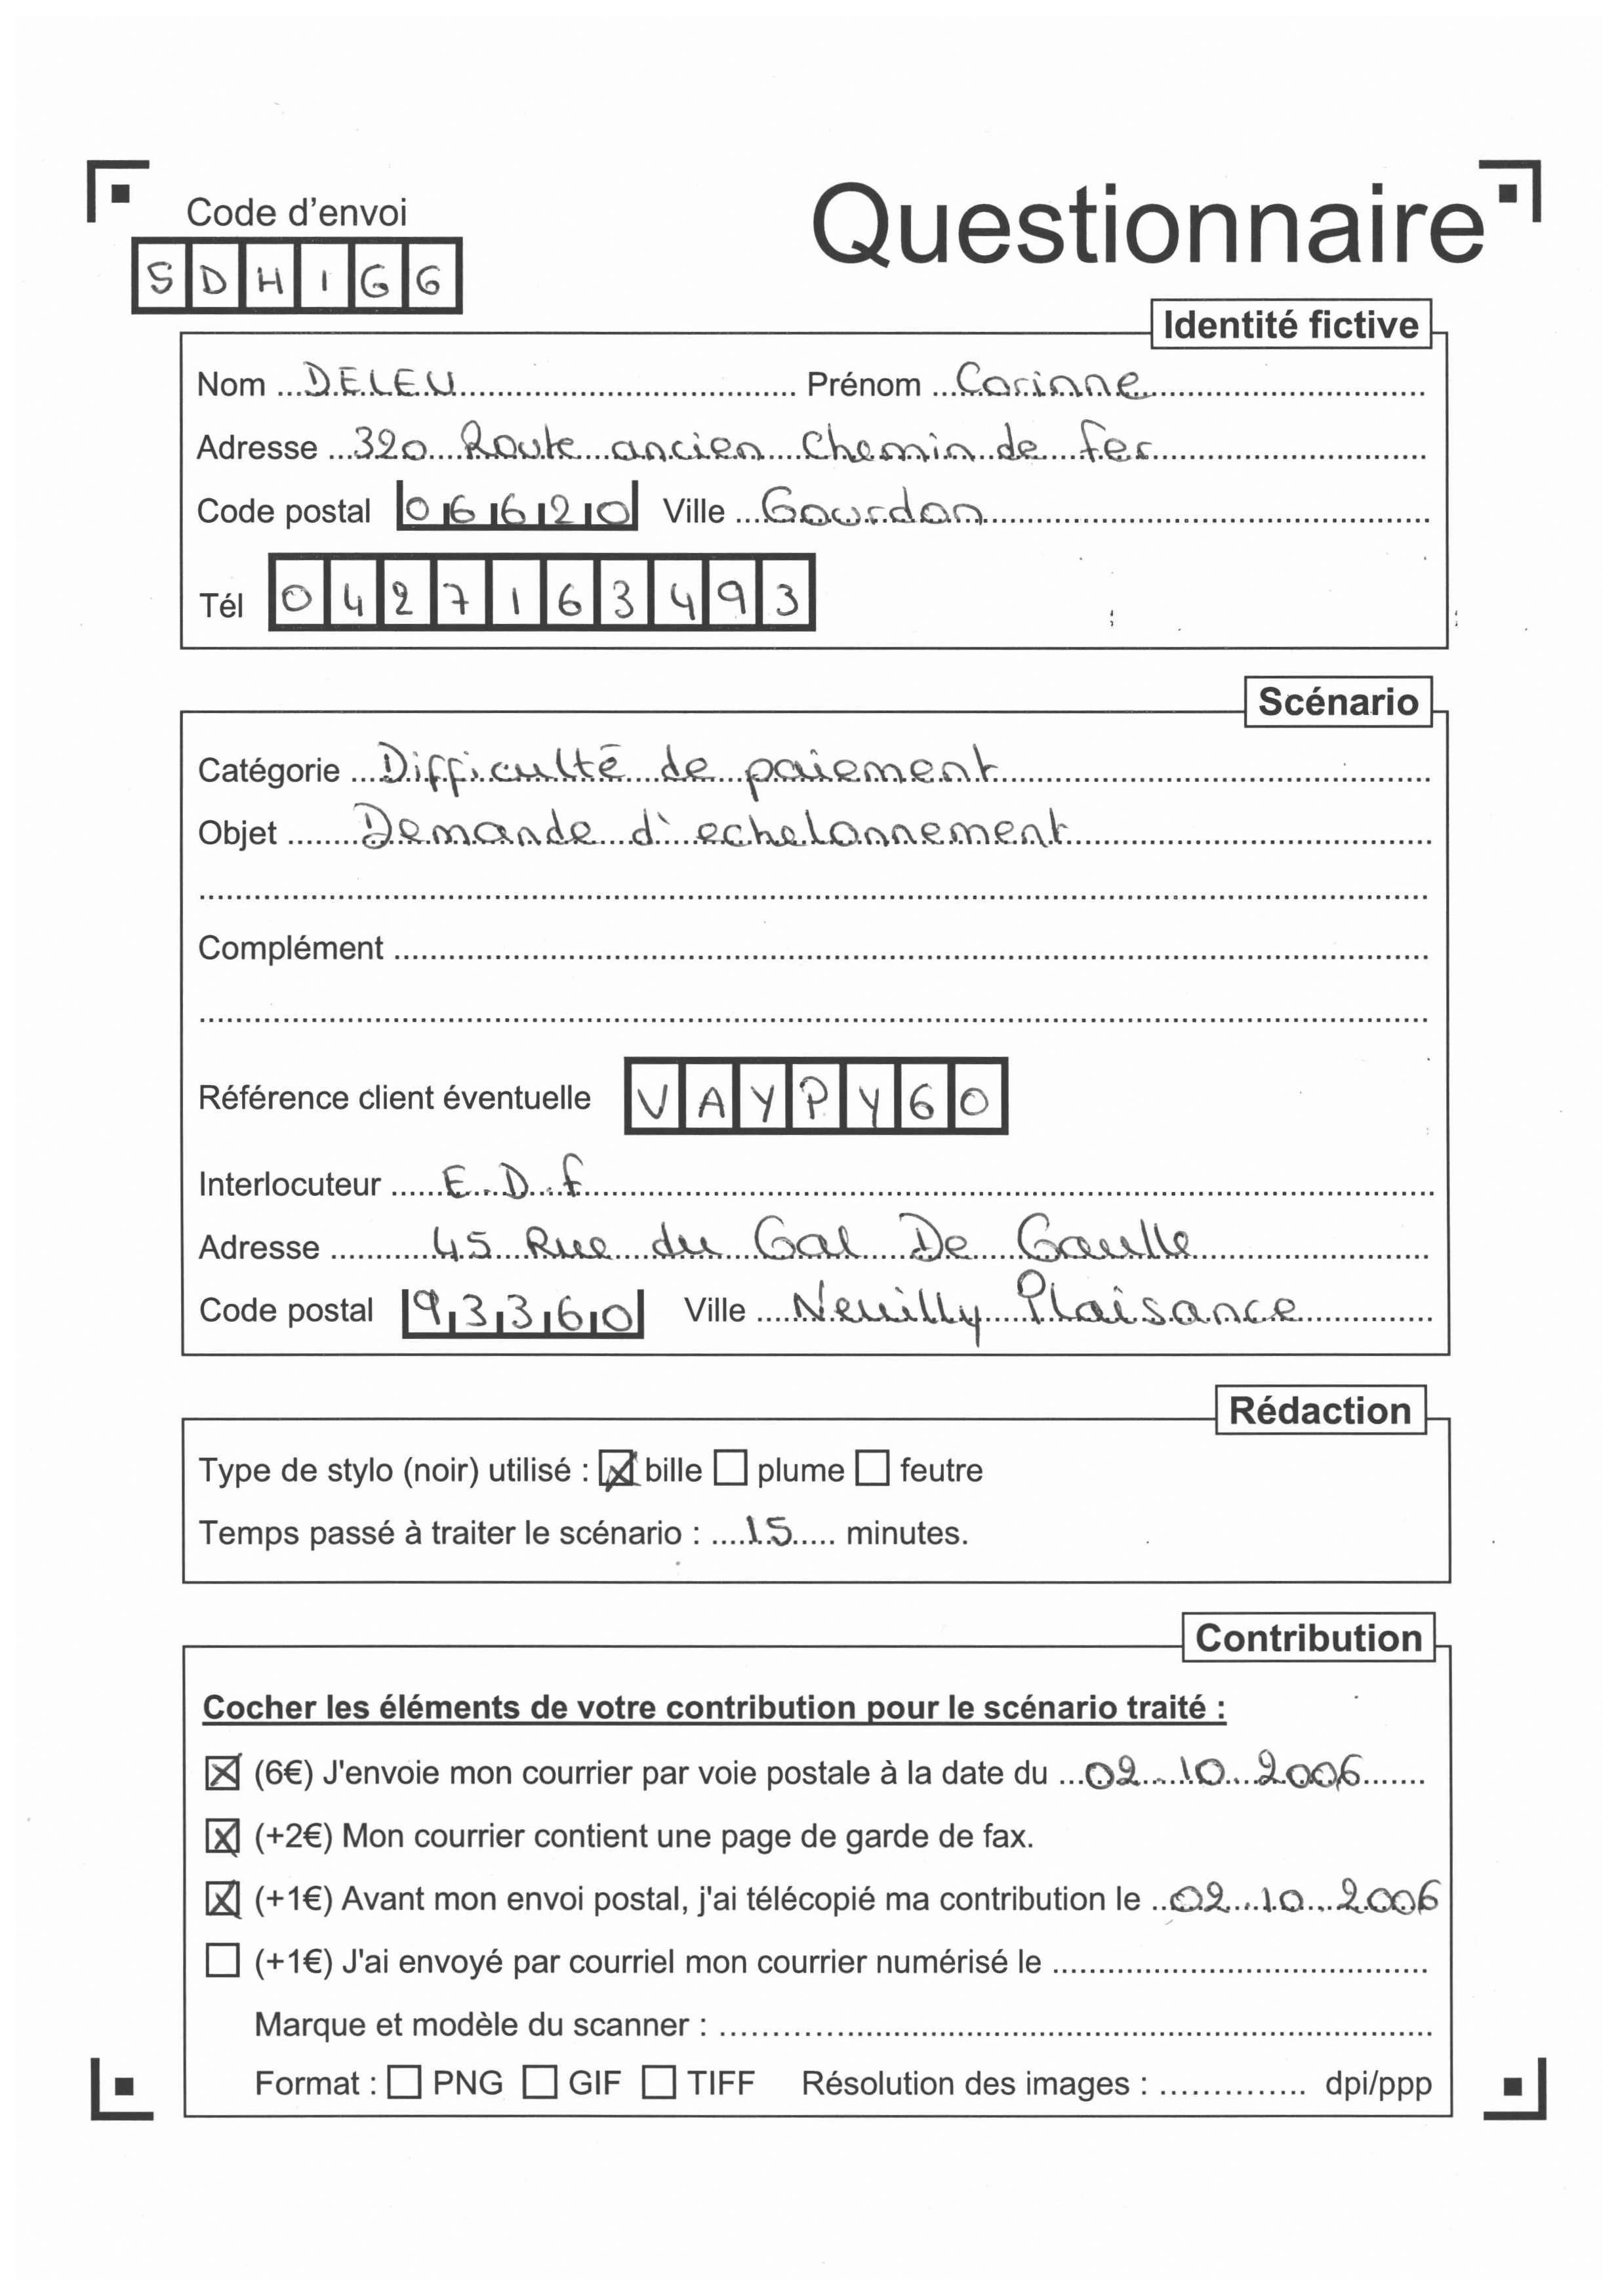 Questionnaire
Code d'envoi
SDHIGG
Identité fictive
Nom DELEU Prénom Corinne
Adresse 320 Route ancien Chemin de fer
Code postal 06620 Ville Gourdon
Tél 0427163493
Scénario
Catégorie Difficulté de paiement
Objet Demande d'echelonnement
Complément
Référence client éventuelle VAYPY60
Interlocuteur E.D.f
Adresse 45 Rue du Gal De Gaulle
Code postal 93360 Ville Neuilly Plaisance
Rédaction
Type de stylo (noir) utilisé : ☒ bille ☐ plume ☐ feutre
Temps passé à traiter le scénario : 15 minutes.
Contribution
Cocher les éléments de votre contribution pour le scénario traité :
☒ (6€) J'envoie mon courrier par voie postale à la date du 02.10.2006
☒ (+2€) Mon courrier contient une page de garde de fax.
☒ (+1€) Avant mon envoi postal, j'ai télécopié ma contribution le 02.10.2006
☐ (+1€) J'ai envoyé par courriel mon courrier numérisé le
Marque et modèle du scanner :
Format : ☐ PNG ☐ GIF ☐ TIFF Résolution des images : dpi/ppp